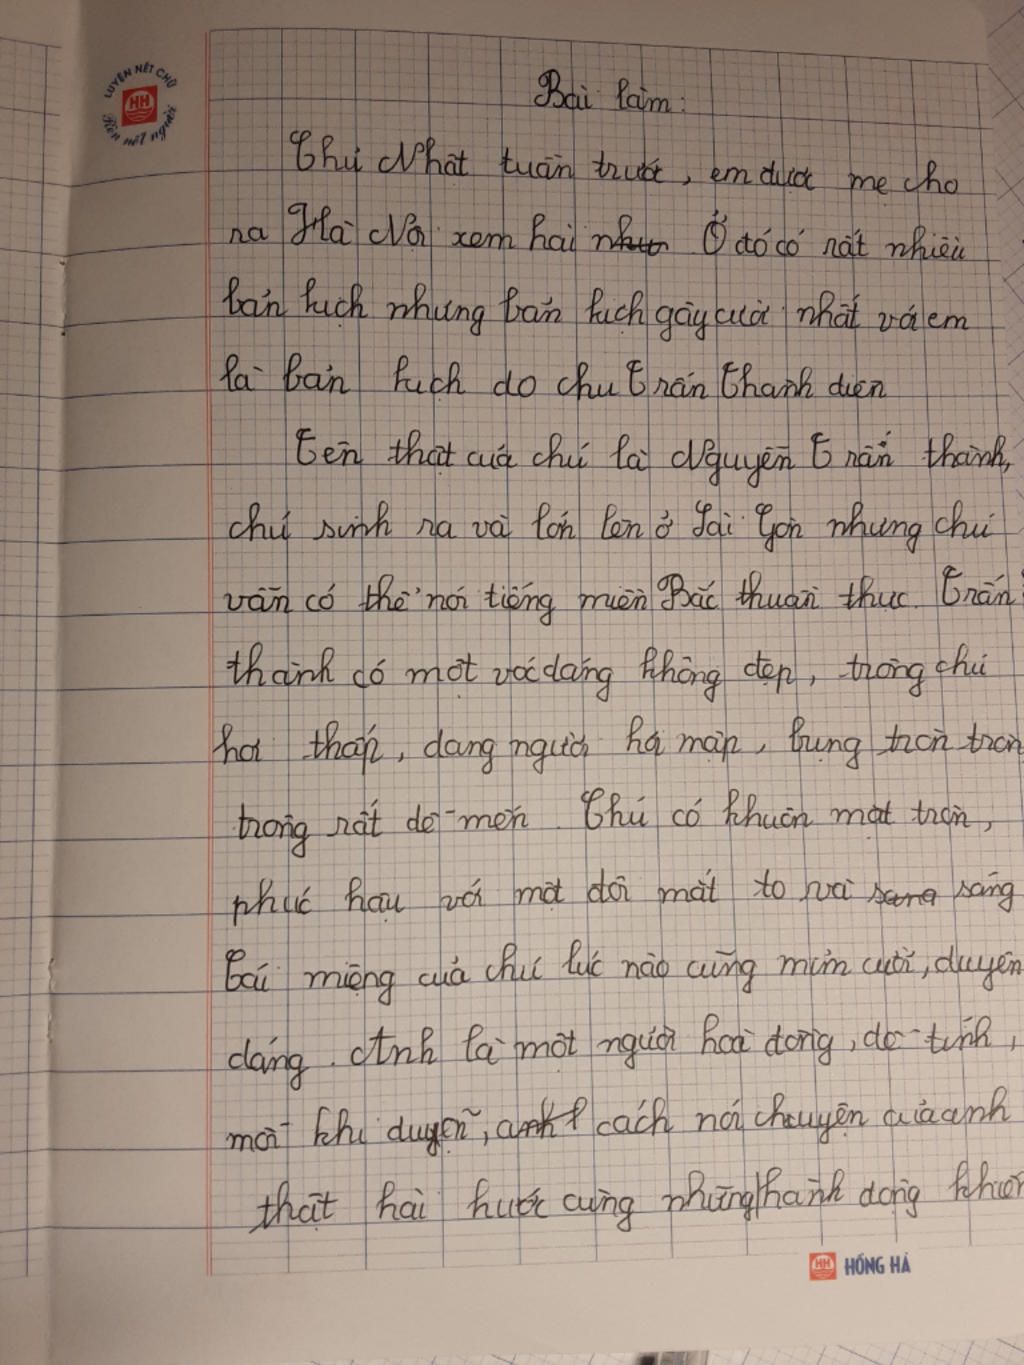 LUYỆN NÉT CHỮ
HH
Rèn nết người
Bài làm:
Chủ Nhật tuần trước, em được mẹ cho
ra Hà Nội xem hài Ở đó có rất nhiều
bản kịch nhưng bản kịch gây cười nhất với em
là bản kịch do chú Trấn Thành diễn
Tên thật của chú là Nguyễn Trấn thành,
chú sinh ra và lớn lên ở Sài Gòn nhưng chú
vẫn có thể nói tiếng miền Bắc thuần thục. Trấn
thành có một vóc dáng không đẹp, trông chú
hơi thấp, dáng người hơi mập, bụng tròn tròn
trông rất dễ mến. Chú có khuôn mặt tròn,
phúc hậu với một đôi mắt to và sáng
Cái miệng của chú lúc nào cũng mỉm cười, duyên
dáng. Anh là một người hoà đồng, dễ tính,
mỗi khi duyễn, cách nói chuyện của anh
thật hài hước cùng những hành động khiến
HH HỒNG HÀ